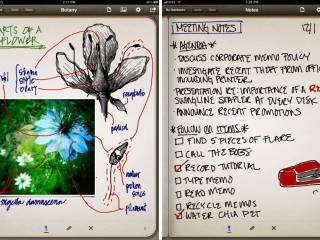 Botany
PARTS OF A
FLOWER
Stigma
Style
Ovary
pedicel
filament
Nigella damascena
Notes
MEETING NOTES
12/1
*AGENDA*
- DISCUSS CORPORATE MEMO POLICY
- INVESTIGATE RECENT THEFT FROM OFFI
INCLUDING POINTER
- PRESENTATION RE: IMPORTANCE IF A RE
SWINGLINE STAPLER AT EVERY DISK
- ANNOUNCE RECENT PROMOTIONS
*FOLLOW ON ITEMS*
FIND 5 PIECES OF FLARE
CALL THE BOBS
RECORD TUTORIAL
TYPE MEMO
READ MEMO
RECYCLE MEMOS
WATER CHIA PET